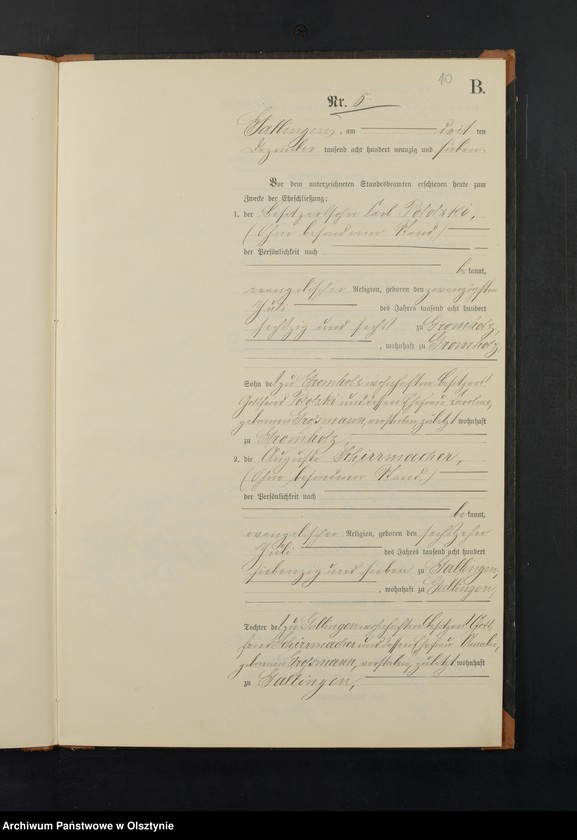 10
B.
Nr. 5
Gallingen, am drit ten
Dezember tausend acht hundert neunzig und sieben
Vor dem unterzeichneten Standesbeamten erschienen heute zum
Zwecke der Eheschließung:
1. der Besitzersohn Carl
(Ohne besonderen Stand)
der Persönlichkeit nach
be kannt,
evangelischer Religion, geboren den zwanzigsten
Juli des Jahres tausend acht hundert
sechzig und sechs zu Gromholz,
, wohnhaft zu Gromholz,
Sohn des zu Gromholz wohnhaften Besitzers
Gottfried und dessen Ehefrau Caroline,
geborenen Grossmann, zuletzt wohnhaft
zu Gromholz,
2. die Auguste Schirrmacher,
(Ohne besonderen Stand)
der Persönlichkeit nach
be kannt,
evangelischer Religion, geboren den sechzehn
Juli des Jahres tausend acht hundert
siebenzig und sieben zu Gallingen,
, wohnhaft zu Gallingen,
Tochter des zu Gallingen wohnhaften Besitzers Gott
fried Schirrmacher und dessen Ehefrau Amalie,
geborenen Grossmann, zuletzt wohnhaft
zu Gallingen,
Archiwum Państwowe w Olsztynie